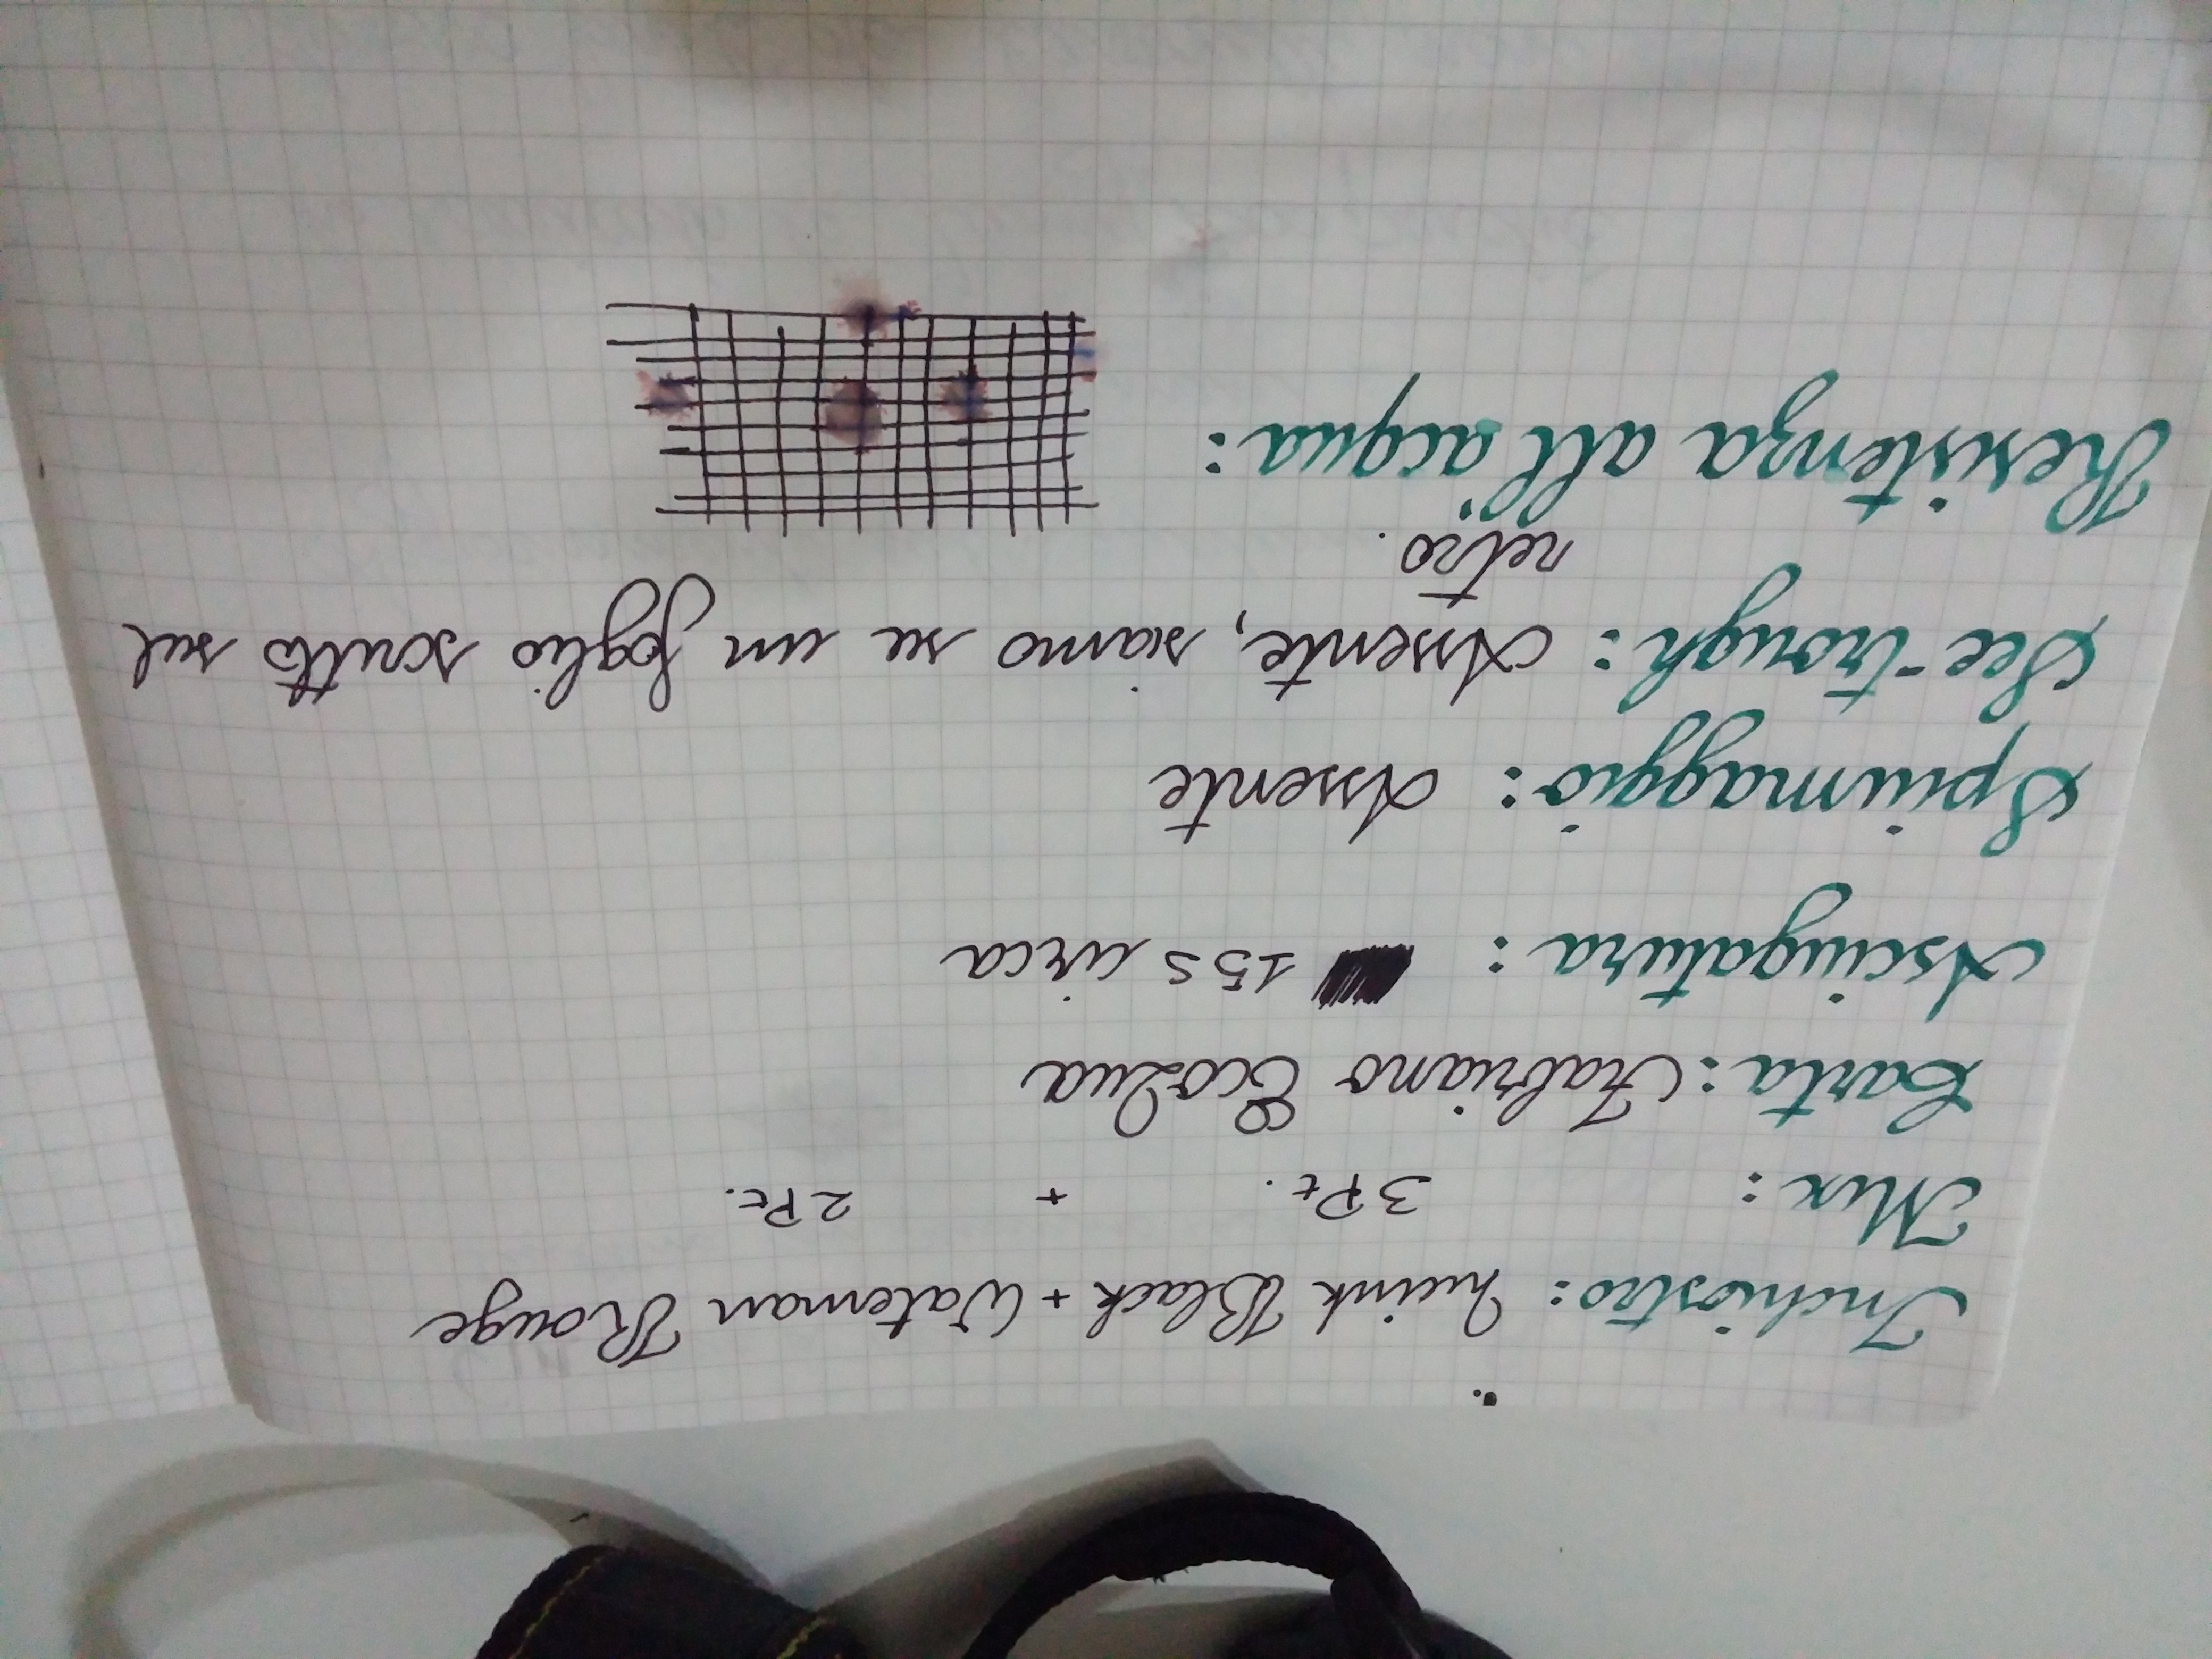 Inchiostro: Quink Black + Waterman Rouge
Mix: 3 Pt. + 2 Pt.
Carta: Fabriano EcoQua
Asciugatura: 15s circa
Spiumaggio: Assente
See-trough: Assente, siamo su un foglio scritto sul
retro.
Resistenza all'acqua: